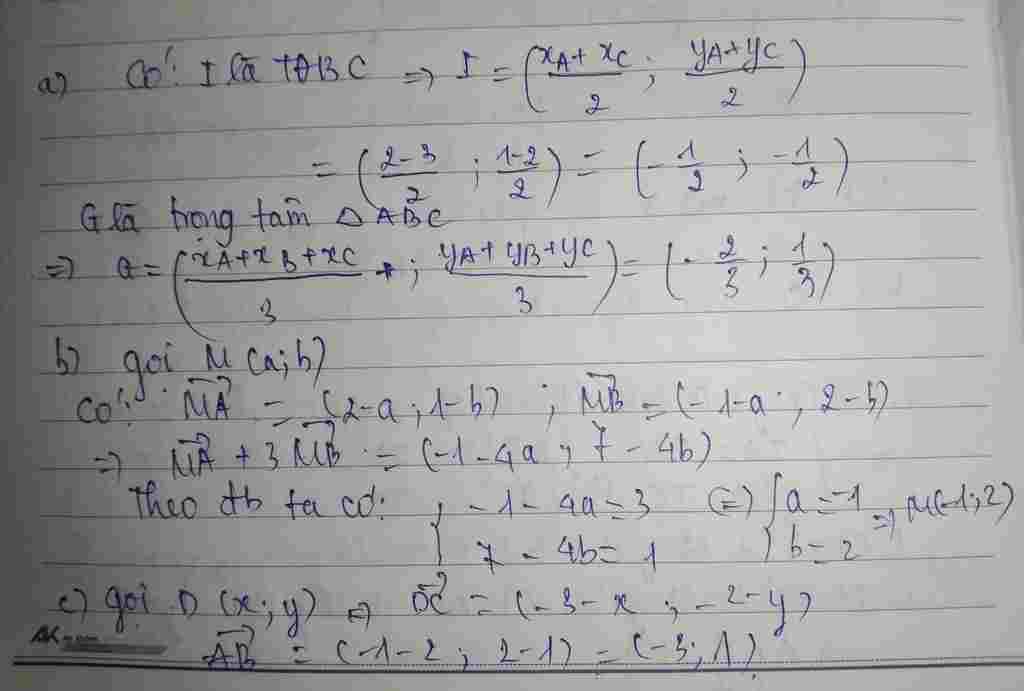 a) Có: I là TĐ BC => I = (xA + xC / 2 ; yA + yC / 2)
= (2-3 / 2 ; 1-2 / 2) = (-1/2 ; -1/2)
G là trọng tâm △ABC
=> G = (xA + xB + xC / 3 ; yA + yB + yC / 3) = (-2/3 ; 1/3)
b) gọi M (a; b)
Có: MA = (2-a ; 1-b) ; MB = (-1-a ; 2-b)
=> MA + 3MB = (-1-4a ; 7-4b)
Theo đb ta có: { -1-4a=3 (=) { a=-1 => M(-1;2)
7-4b=1 b=2
c) gọi D (x; y) => DC = (-3-x ; -2-y)
AB = (-1-2 ; 2-1) = (-3; 1)